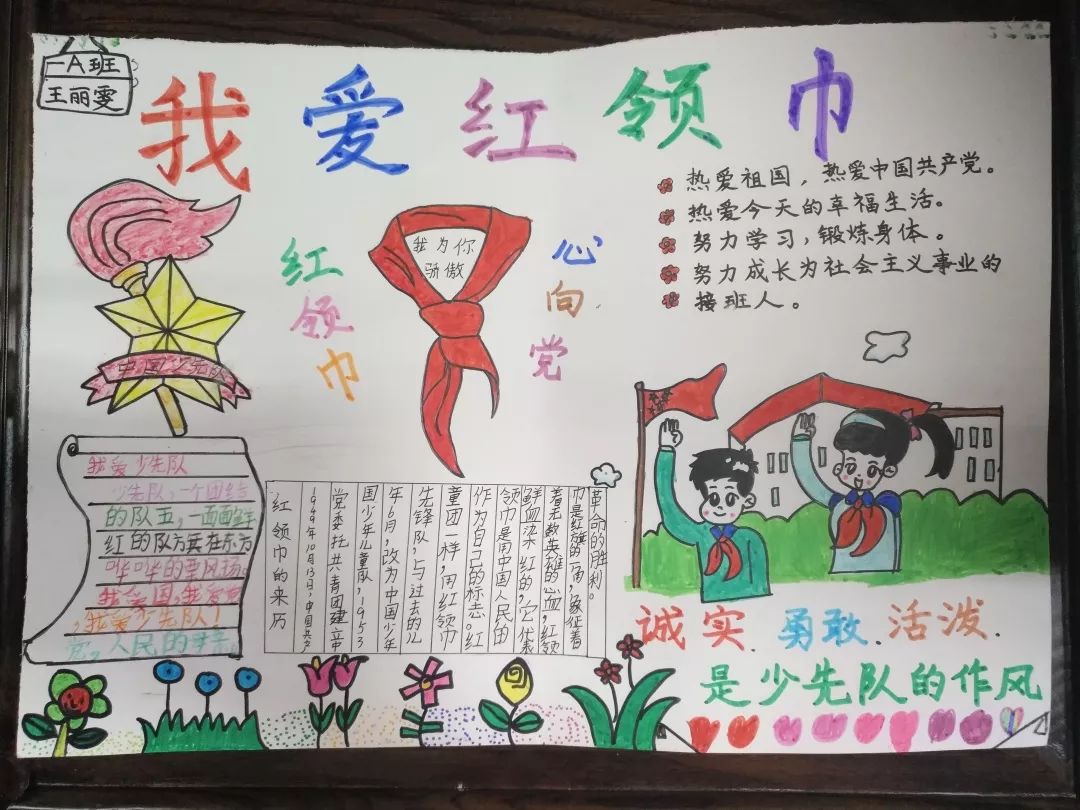 一A班
王丽雯
我爱红领巾
热爱祖国，热爱中国共产党。
热爱今天的幸福生活。
努力学习，锻炼身体。
努力成长为社会主义事业的
接班人。
红领巾
我为你
骄傲
心向党
中国少先队
我爱少先队
少先队，一个团结
的队五，一面面鲜
红的队 在东方
哗哗的 风
我爱国，我爱党
，我爱少先队！
党，人民的
红领巾的来历
1949年10月13日，中国共产
党委托共青团建立中
国少年儿童队，1953
年6月，改为中国少年
先锋队，与过去的儿
童团一样，用红领巾
作为自己的标志。红
领巾是用中国人民的
鲜血染红的，它代表
着无数英雄的心血，红领
巾是红旗的一角，象征着
革命的胜利。
诚实.勇敢.活泼.
是少先队的作风